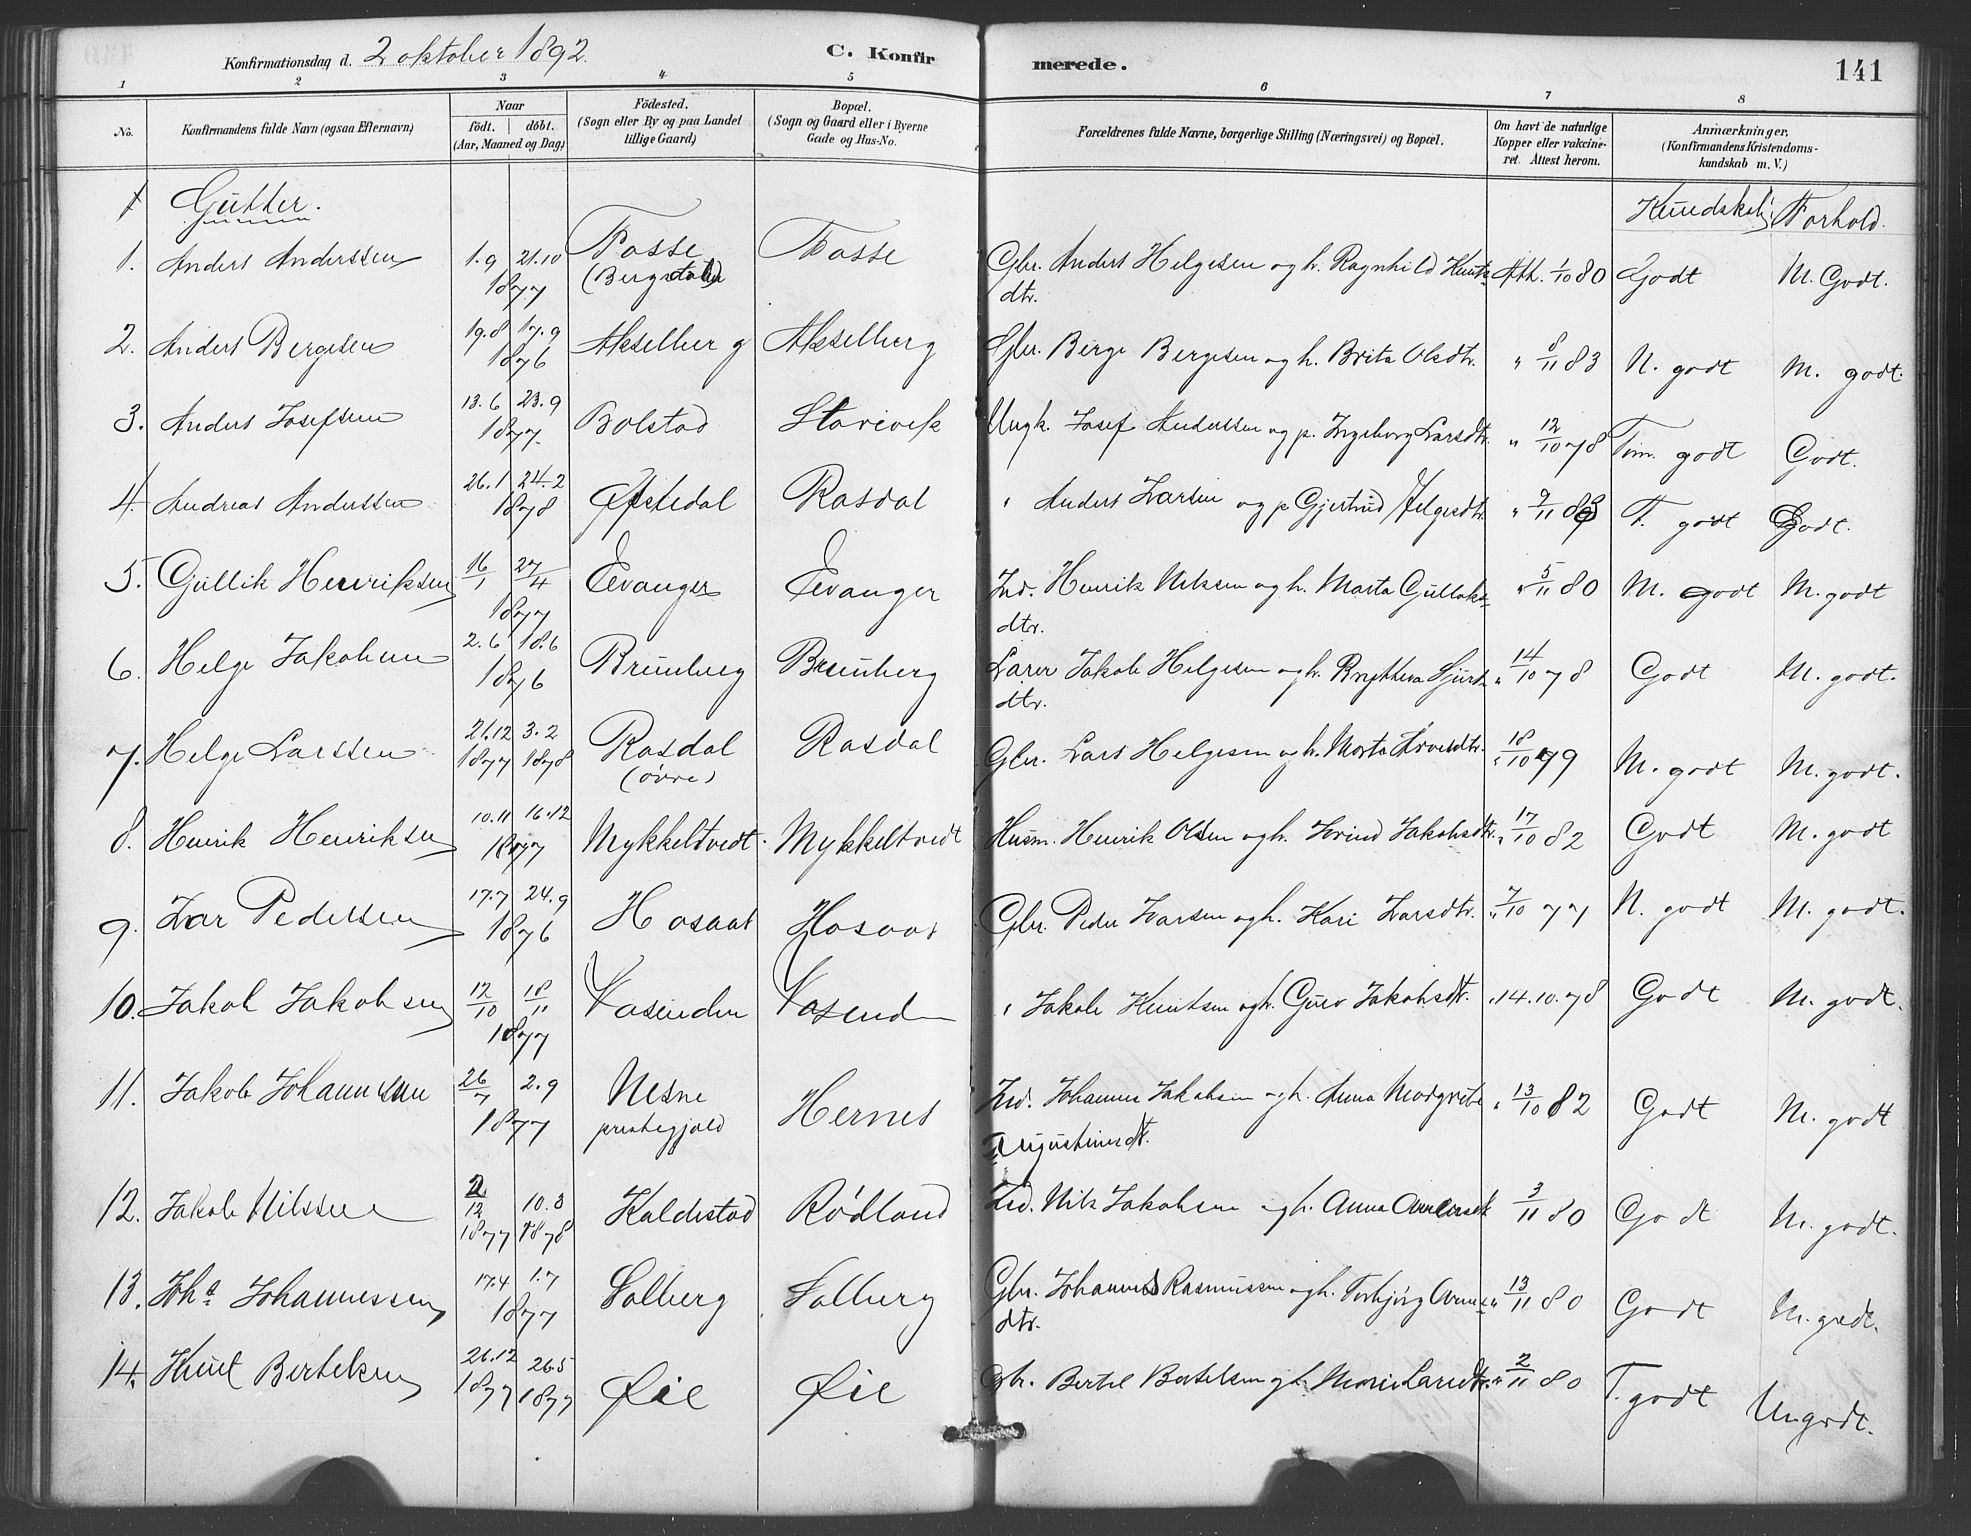 Konfirmationsdag d. 2 oktober 1892. C. Konfir merede. 141
1 2 3 4 5 6 7 8
No. Konfirmandens fulde Navn (ogsaa Efternavn) Naar født. døbt. (Aar, Maaned og Dag) Födested. (Sogn eller By og paa Landet tillige Gaard) Bopæl. (Sogn og Gaard eller i Byerne Gade og Hus-No. Forældrenes fulde Navne, borgerlige Stilling (Næringsvei) og Bopæl. Om havt de naturlige Kopper eller vakcineret. Attest herom. Anmærkninger. (Konfirmandens Kristendomskundskab m. V.)
Gutter. Kundskab. Forhold.
1. Anders Anderssen 1.9 21.10 1877 Fosse Fosse Gbr. Anders Helgesen og h. Ragnhild Knuts- Att. 1/10 80 Godt M. Godt.
dtr.
2. Anders Bergesen 19.8 17.9 1876 Akselberg Akselberg Gbr. Berge Bergesen og h. Brita Olsdtr. " 8/11 83 N. godt M. godt.
3. Anders Josefsen 13.6 23.9 1877 Bolstad Storevik Ungk. Josef Anderssen og p. Ingeborg Larsdtr. " 12/10 78 Tem. godt Godt.
4. Andreas Anderssen 26.1 24.2 1878 Øfstedal Rasdal " Anders Larsen og p Gjertrud Helgesdtr. " 9/11 83 T. godt Godt.
5. Gullik Henriksen 16/1 27/4 1877 Evanger Evanger Ind. Henrik Nilsen og h. Marta Gullaks- " 5/11 80 M. godt M. godt
dtr.
6. Helge Jakobsen 2.6 18.6 1876 Brunberg Brunberg Lærer Jakob Helgesen og h. Brytteva Sjurs- " 14/10 78 Godt M. godt.
dtr.
7. Helge Larssen 21.12 1877 3.2 1878 Rasdal (övre) Rasdal Gbr. Lars Helgesen og h. Marta dtr. " 18/10 79 M. godt M. godt.
8. Henrik Henriksen 10.11 16.12 1877 Mykkeltvedt. Mykkeltvedt Husm. Henrik Olsen og h. Jorind Jakobsdtr. " 17/10 82 Godt M. godt
9. Ivar Pedersen 17.7 24.9 1876 Hosaas Hosaas Gbr. Peder Ivarsen og h. Kari Ivarsdtr. " 7/10 77 N. godt M. godt.
10. Jakob Jakobsen 12/10 18/11 1877 Vasenden Vasend " Jakob Knutsen og h. Guro Jakobsdtr. " 14.10.78 Godt M. godt.
11. Jakob Johannessen 26/7 2.9 1877 Nesne prestegjeld Hernes Ind. Johannes Jakobsen og h. Anna Margrete " 13/10 82 Godt M. godt
Augustinusdt.
12. Jakob Nilssen 2/12 1877 10.3 1878 Kaldestad Rødland Ind. Nils Jakobsen og h. Anna 3/11 80 Godt M. godt.
13. Johs Johannessen 17.4 1.7 1877 Solberg Solberg Gbr. Johannes Rasmussen og h. Torbjørg Arne- " 13/11 80 Godt M. godt.
dtr.
14. Knut Bertelsen 26.12 1877 26.5 1877 Øie Øie Gbr. Bertel Bertelsen og h. Mari Larsdtr. " 2/11 80 T. godt M. godt.